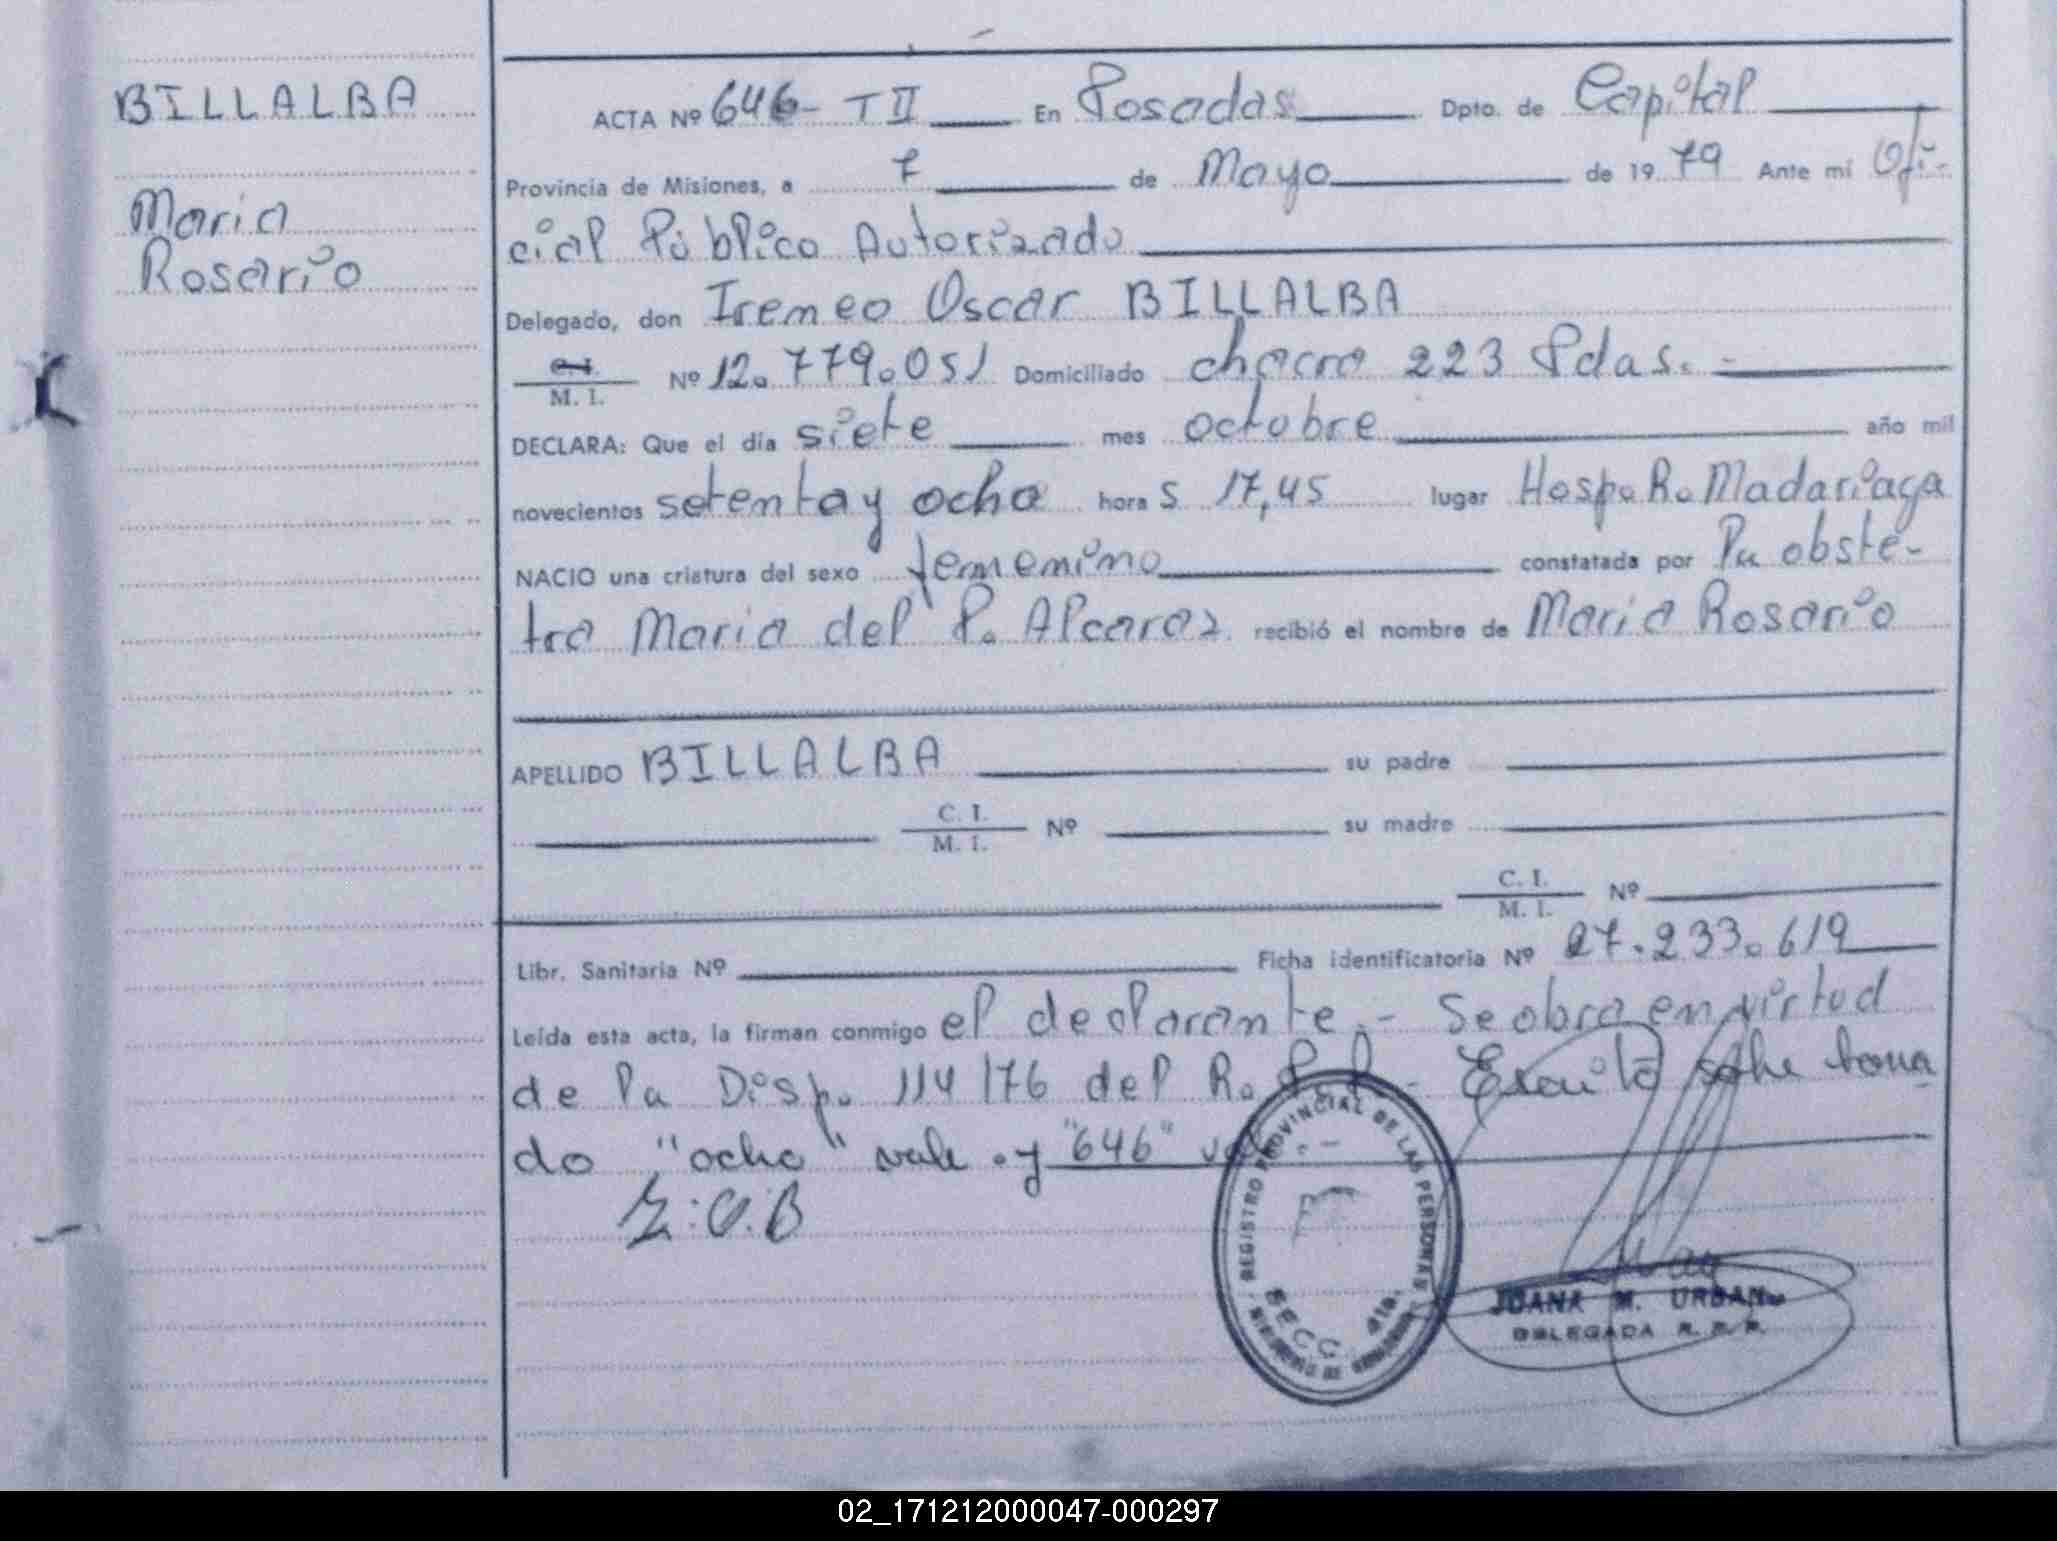 BILLALBA
Maria
Rosario
ACTA Nº 646- T II En Posadas Dpto. de Capital
Provincia de Misiones, a 7 de Mayo de 1979 Ante mi Ofi-
cial Público Autorizado
Delegado, don Ireneo Oscar BILLALBA
C. I.
M. I. Nº 12.779.051 Domiciliado chacra 223 Pdas. -
DECLARA: Que el día siete mes octubre año mil
novecientos setenta y ocho hora s 17,45 lugar Hosp. R. Madariaga
NACIO una criatura del sexo femenino constatada por la obste-
tra Maria del P. Alcaraz recibió el nombre de Maria Rosario
APELLIDO BILLALBA su padre
C. I.
M. I. Nº su madre
C. I.
M. I. Nº
Libr. Sanitaria Nº Ficha identificatoria Nº 27.233.619
Leída esta acta, la firman conmigo el declarante.- Se obra en virtud
de la Disp. 114/76 del R. P. P. - Escrito sobre borra
do "ocho" vale . y "646" vale. -
I.O.B
REGISTRO PROVINCIAL DE LAS PERSONAS
SECC. 4ta.
JUANA M. URBAN
DELEGADA R. P. P.
02_171212000047-000297